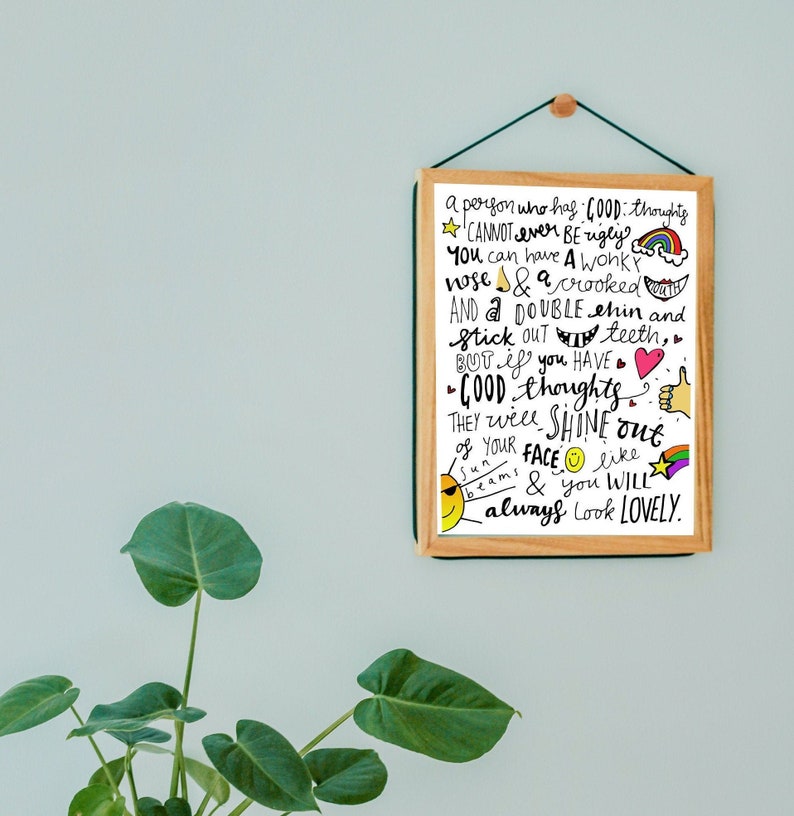 a person who has GOOD thoughts
CANNOT ever BE ugly
YOU can have A WONKY
nose & a crooked MOUTH
AND a DOUBLE chin and
stick OUT teeth,
BUT if you HAVE
GOOD thoughts
THEY will SHINE out
of YOUR FACE like
sun
beams & you WILL
always look LOVELY.